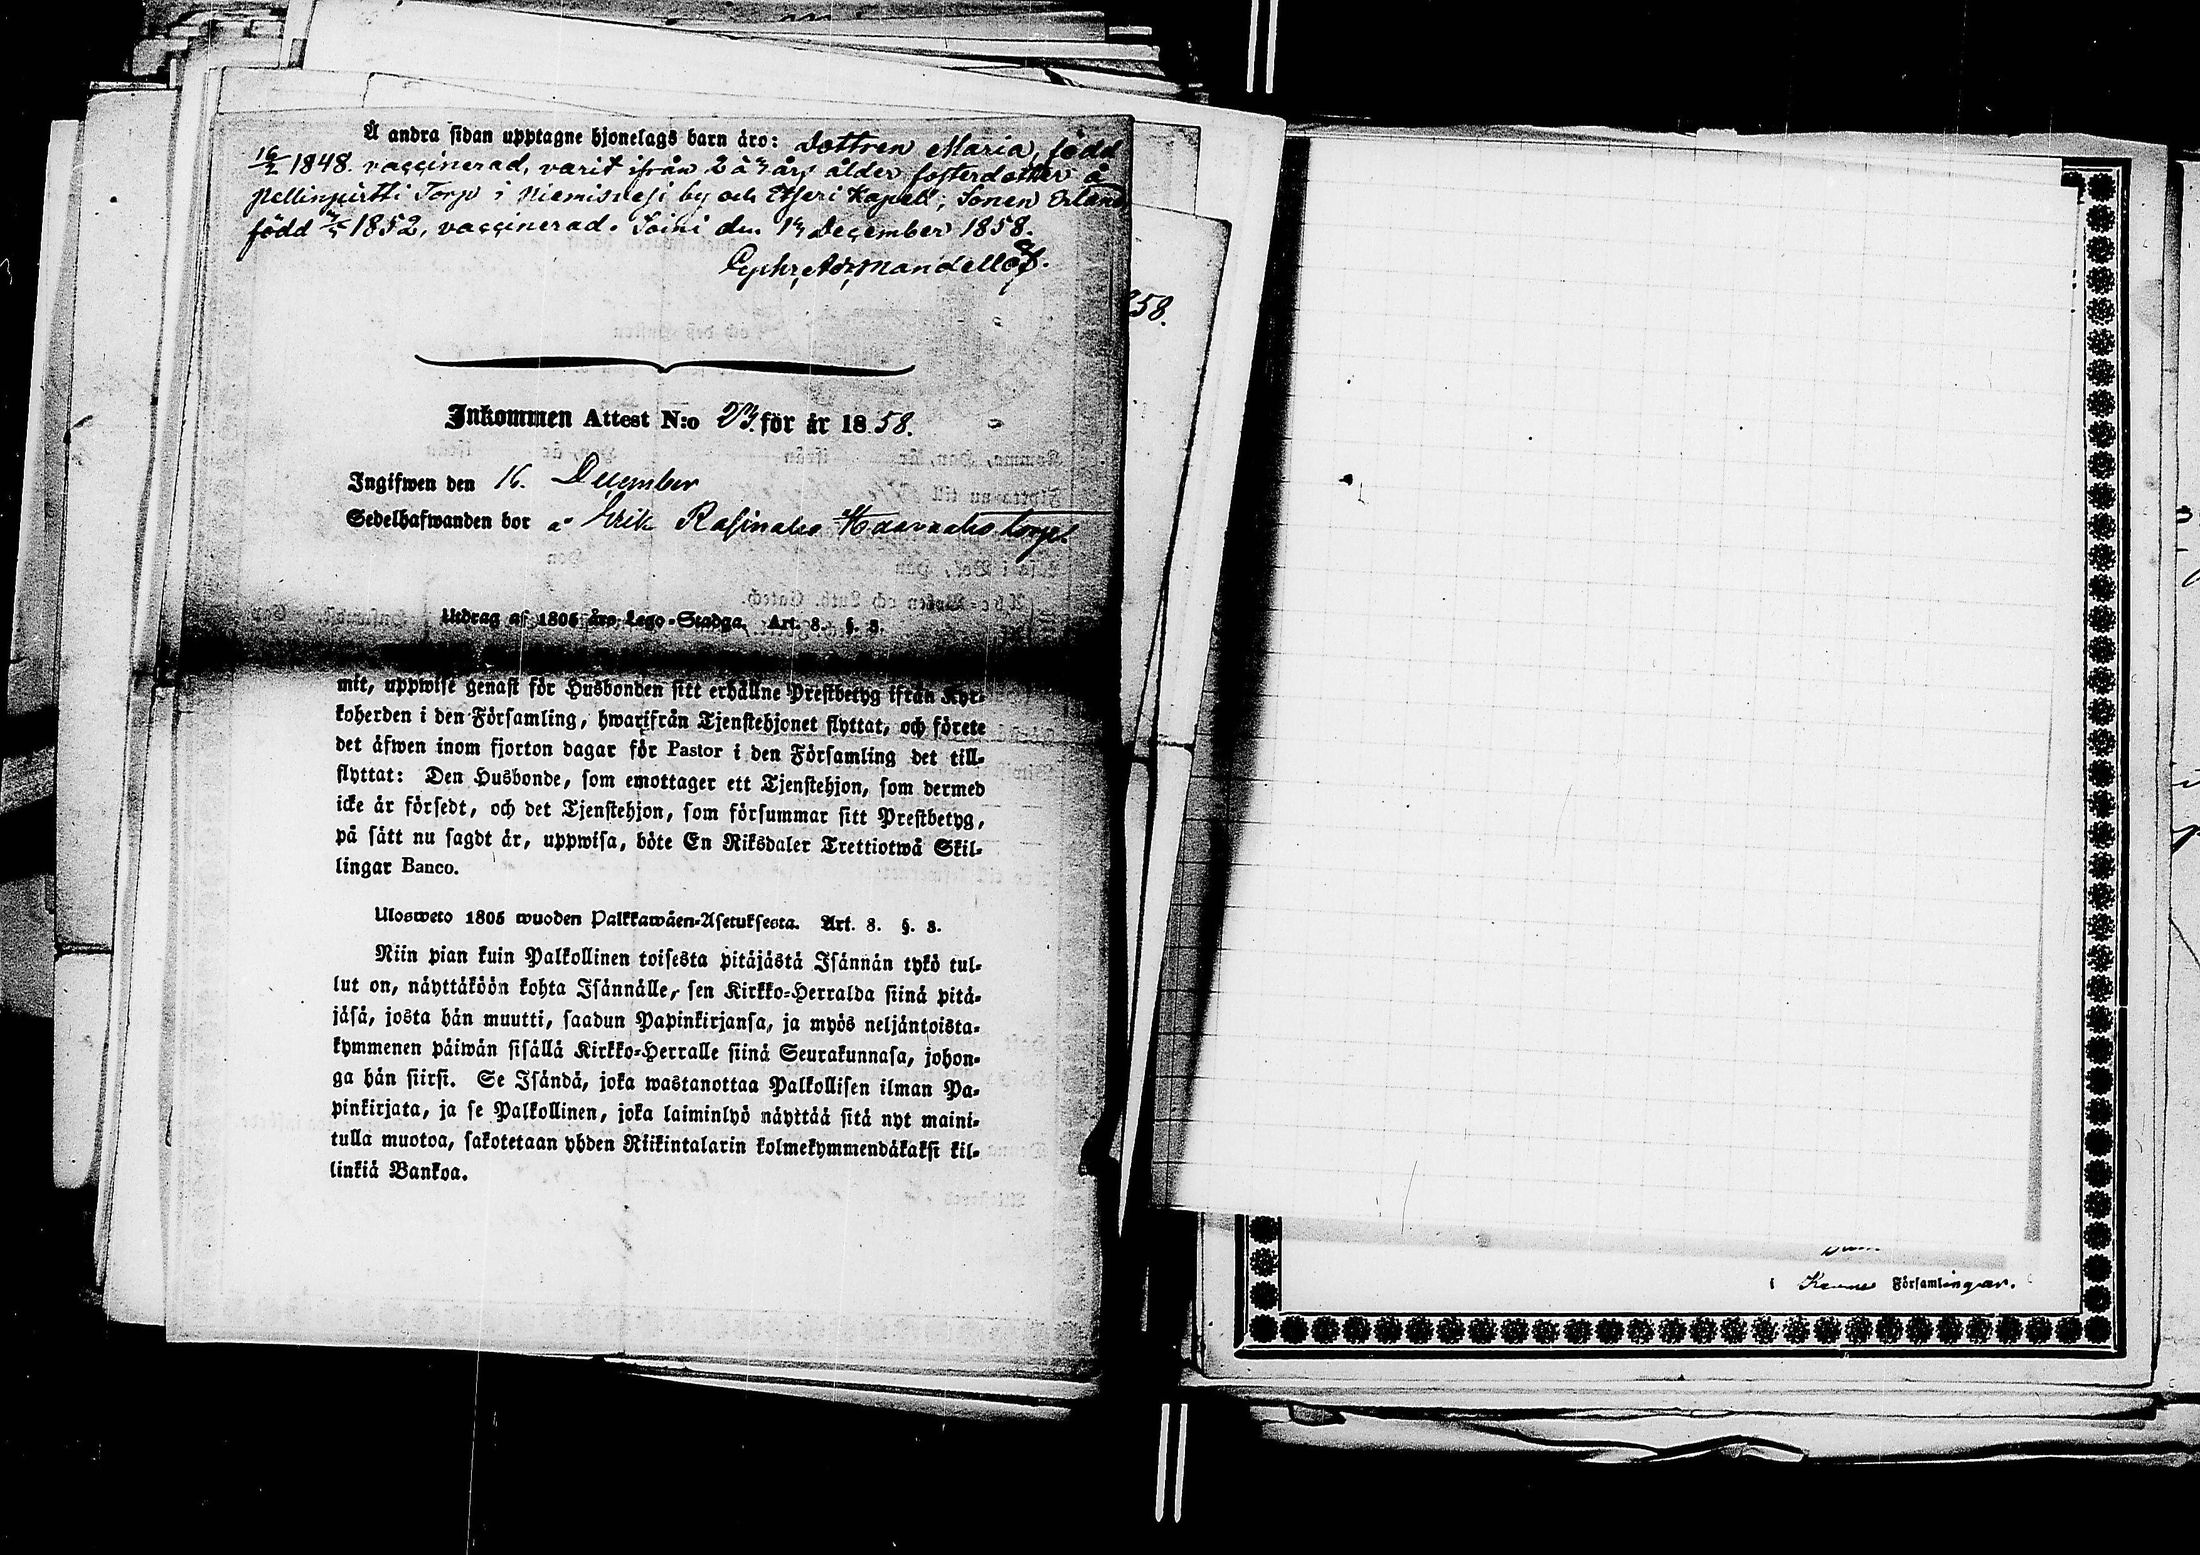 Å andra sidan upptagne hjonelags barn äro: Dottren Maria, född
16/2 1848. vaccinerad, varit ifrån 2 à 3 års ålder fosterdotter å
Pellinpirtti Torp i Niemisvesi by och Etseri Kapell; Sonen Erland
född 1852, vaccinerad. Soini den 13 December 1858.
58.
Inkommen Attest N:o 23. för år 1858.
Ingifwen den 16. December
Sedelhafwanden bor å Erik Rasinaho Haavaaho torp.
Utdrag af 1805 års Lego-Stadga. Art. 8. §. 3.
mit, uppwise genast för Husbonden sitt erhållne Prestbetyg ifrån Kyr-
koherden i den Församling, hwarifrån Tjenstehjonet flyttat, och förete
det äfwen inom fjorton dagar för Pastor i den Församling det till-
flyttat: Den Husbonde, som emottager ett Tjenstehjon, som dermed
icke är försedt, och det Tjenstehjon, som försummar sitt Prestbetyg,
på sätt nu sagdt är, uppwisa, böte En Riksdaler Trettiotwå Skil-
lingar Banco.
Ulosweto 1805 wuoden Palkkawäen-Asetuksesta. Art. 8. §. 3.
Niin pian kuin Palkollinen toisesta pitäjästä Isännän tykö tul-
lut on, näyttäköön kohta Isännälle, sen Kirkko-Herralda siinä pitä-
jäsä, josta hän muutti, saadun Papinkirjansa, ja myös neljäntoista-
kymmenen päiwän sisällä Kirkko-Herralle siinä Seurakunnasa, johon-
ga hän siirsi. Se Isändä, joka wastanottaa Palkollisen ilman Pa-
pinkirjata, ja se Palkollinen, joka laiminlyö näyttää sitä nyt maini-
tulla muotoa, sakotetaan yhden Riikintalarin kolmekymmendäkaksi kil-
linkiä Bankoa.
i Församlingar.